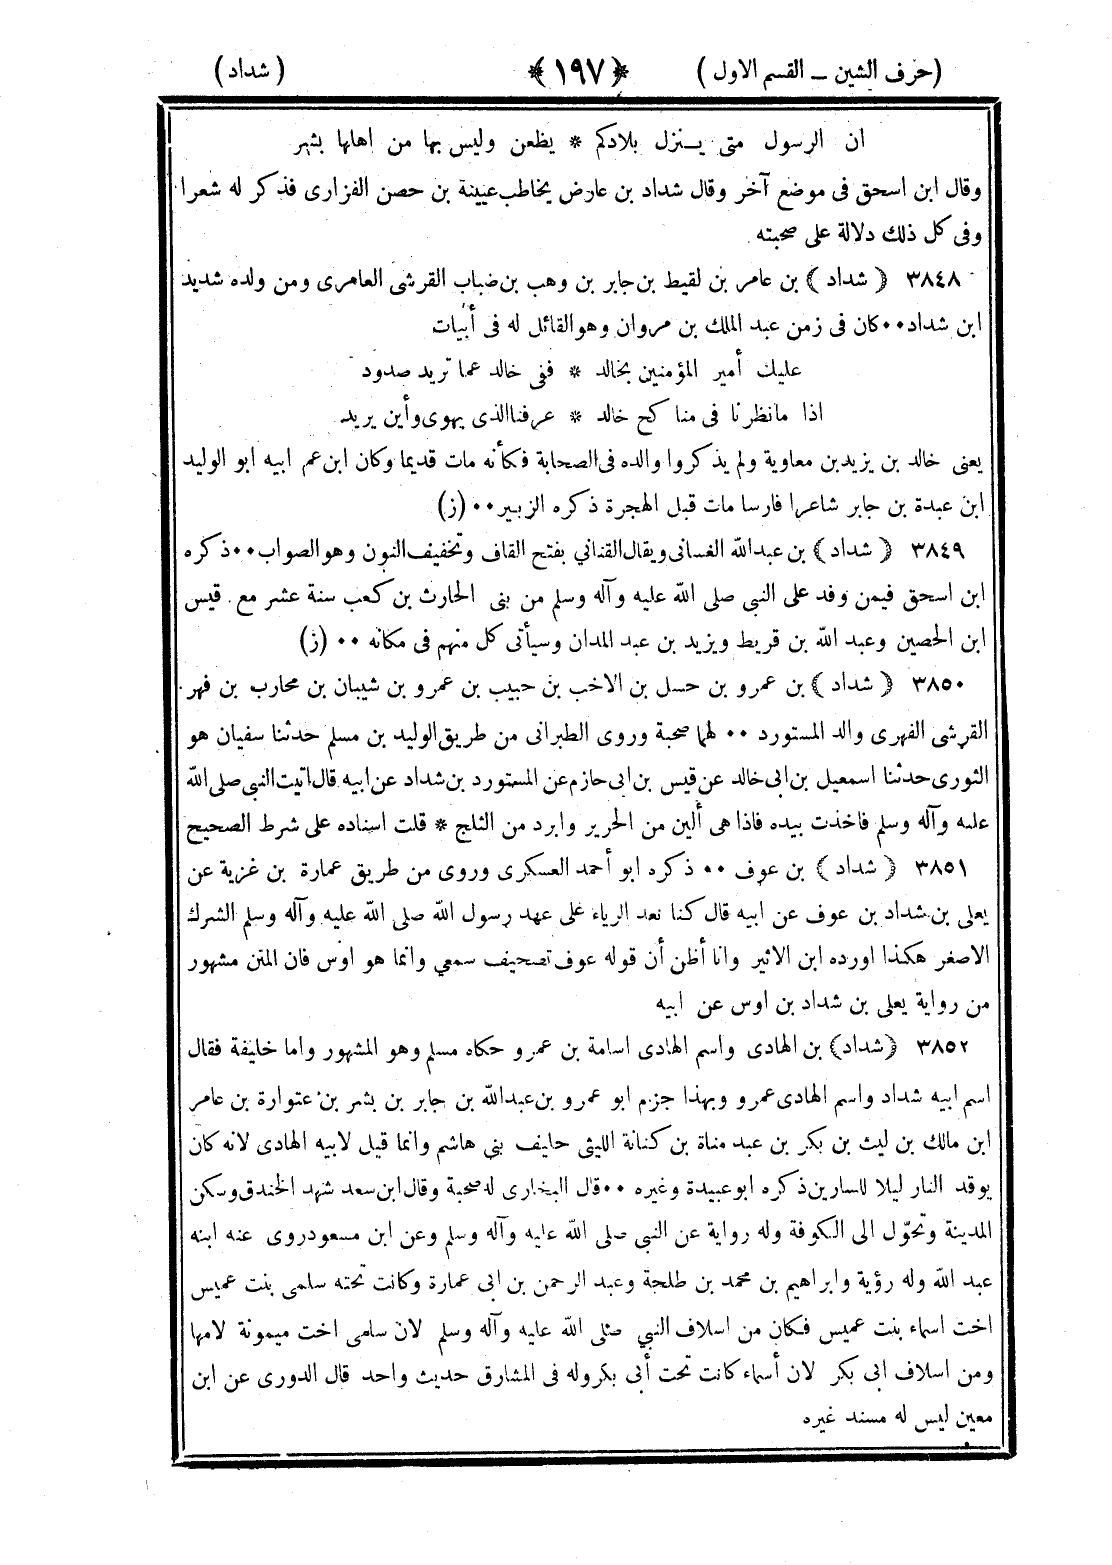 (حرف الشين ــ القسم الاول) ﴿١٩٧﴾ (شداد)
ان الرسول متى يــنزل بلادكم * يظعن وليس بها من اهلها بشهر
وقال ابن اسحق فى موضع آخر وقال شداد بن عارض يخاطب عيينة بن حصن الفزارى فذكر له شعرا
وفى كل ذلك دلالة على صحبته
٣٨٤٨ ﴿ شداد ﴾ بن عامر بن لقيط بن جابر بن وهب بن ضباب القرشى العامرى ومن ولده شديد
ابن شداد٠٠كان فى زمن عبد الملك بن مروان وهو القائل له فى أبيات
عليك أمير المؤمنين بخالد * ففى خالد عما تريد صدود
اذا مانظرنا فى مناكح خالد * عرفنا الذى يهوى وأين يريد
يعنى خالد بن يزيد بن معاوية ولم يذكروا والده فى الصحابة فكأنه مات قديما وكان ابن عم ابيه ابو الوليد
ابن عبدة بن جابر شاعرا فارسا مات قبل الهجرة ذكره الزبير٠٠ (ز)
٣٨٤٩ ﴿ شداد ﴾ بن عبدالله الغسانى ويقال القناني بفتح القاف وتخفيف النون وهو الصواب٠٠ذكره
ابن اسحق فيمن وفد على النبي صلى الله عليه وآله وسلم من بنى الحارث بن كعب سنة عشر مع قيس
ابن الحصين وعبد الله بن قريط ويزيد بن عبد المدان وسيأتى كل منهم فى مكانه ٠٠ (ز)
٣٨٥٠ ﴿ شداد ﴾ بن عمرو بن حسل بن الاخب بن حبيب بن عمرو بن شيبان بن محارب بن فهر
القرشى الفهرى والد المستورد ٠٠ لهما صحبة وروى الطبرانى من طريق الوليد بن مسلم حدثنا سفيان هو
الثورى حدثنا اسمعيل بن ابى خالد عن قيس بن ابى حازم عن المستورد بن شداد عن ابيه قال اتيت النبي صلى الله
عليه وآله وسلم فاخذت بيده فاذا هى ألين من الحرير وابرد من الثلج * قلت اسناده على شرط الصحيح
٣٨٥١ ﴿ شداد ﴾ بن عوف ٠٠ ذكره ابو أحمد العسكرى وروى من طريق عمارة بن غزية عن
يعلى بن شداد بن عوف عن ابيه قال كنا نعد الرياء على عهد رسول الله صلى الله عليه وآله وسلم الشرك
الاصغر هكذا اورده ابن الاثير وانا أظن أن قوله عوف تصحيف سمعي وانما هو اوس فان المتن مشهور
من رواية يعلى بن شداد بن اوس عن ابيه
٣٨٥٢ ﴿شداد﴾ بن الهادى واسم الهادى اسامة بن عمرو حكاه مسلم وهو المشهور واما خليفة فقال
اسم ابيه شداد واسم الهادى عمرو وبهذا جزم ابو عمرو بن عبدالله بن جابر بن بشر بن عتوارة بن عامر
ابن مالك بن ليث بن بكر بن عبد مناة بن كنانة الليثى حليف بني هاشم وانما قيل لابيه الهادى لانه كان
يوقد النار ليلا للسارين ذكره ابو عبيدة وغيره ٠٠قال البخارى له صحبة وقال ابن سعد شهد الخندق وسكن
المدينة وتحوّل الى الكوفة وله رواية عن النبي صلى الله عليه وآله وسلم وعن ابن مسعود روى عنه ابنه
عبد الله وله رؤية وابراهيم بن محمد بن طلحة وعبد الرحمن بن ابى عمارة وكانت تحته سلمى بنت عميس
اخت اسماء بنت عميس فكان من اسلاف النبي صلى الله عليه وآله وسلم لان سلمى اخت ميمونة لامها
ومن اسلاف ابى بكر لان أسماء كانت تحت أبى بكر وله فى المشارق حديث واحد قال الدورى عن ابن
معين ليس له مسند غيره